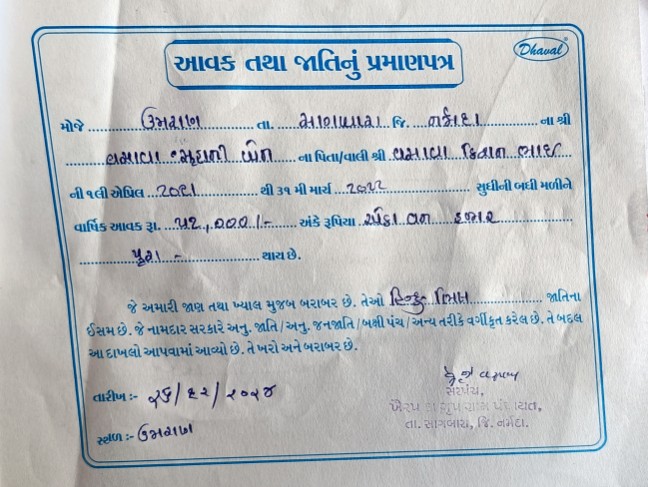 Dhaval
આવક તથા જાતિનું પ્રમાણપત્ર
મોજે ઉમરાણ તા. સાગબારા જિ. નર્મદા ના શ્રી
વસાવા ના પિતા/વાલી શ્રી વસાવા
ની ૧લી એપ્રિલ ૨૦૨૧ થી ૩૧ મી માર્ચ ૨૦૨૨ સુધીની બધી મળીને
વાર્ષિક આવક રૂા. ૫૨,૦૦૦/- અંકે રૂપિયા હજાર
પુરા - થાય છે.
જે અમારી જાણ તથા ખ્યાલ મુજબ બરાબર છે. તેઓ હિન્દુ ભીલ જાતિના
ઈસમ છે. જે નામદાર સરકારે અનુ. જાતિ/અનુ. જનજાતિ/બક્ષી પંચ/અન્ય તરીકે વર્ગીકૃત કરેલ છે. તે બદલ
આ દાખલો આપવામાં આવ્યો છે. તે ખરો અને બરાબર છે.
તારીખ :-
સરપંચ,
ગૃપ ગ્રામ પંચાયત,
તા. સાગબારા, જિ. નર્મદા.
સ્થળ :- ઉમરાણ